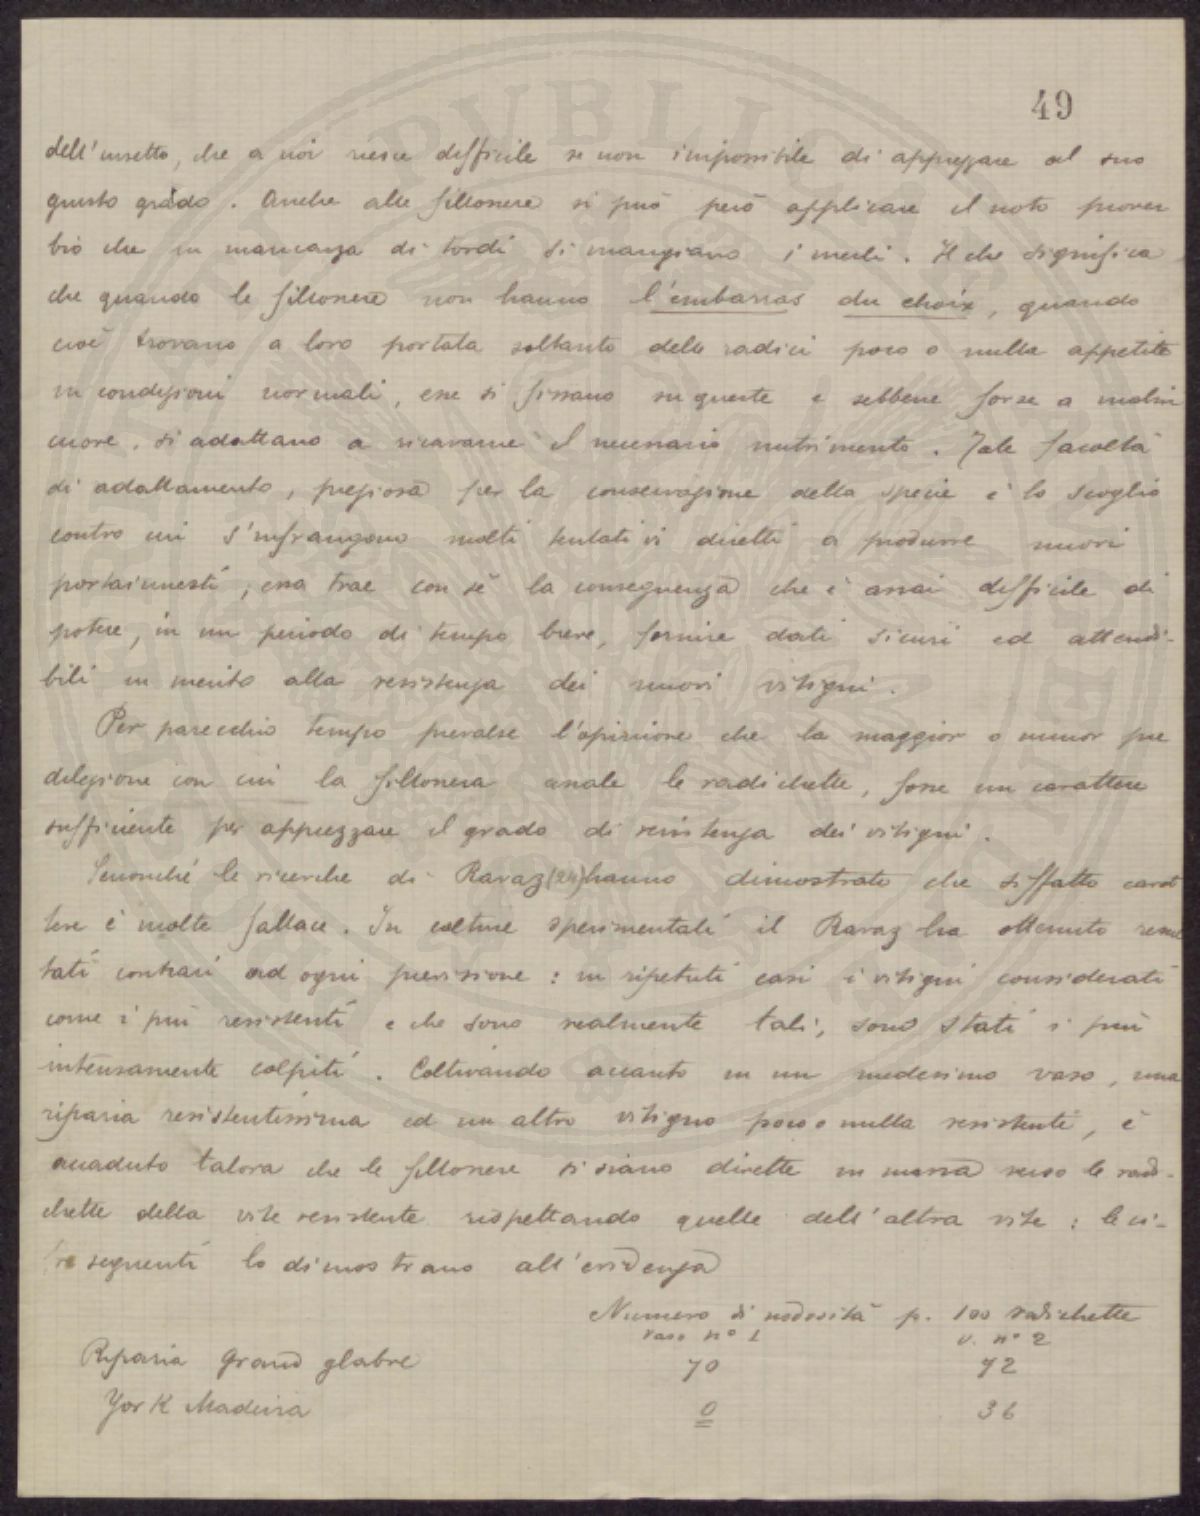 49
dell'insetto, che a noi riesce difficile se non impossibile di apprezzare al suo
giusto grado. Anche alle fillossere si può però applicare il noto prover
bio che in mancanza di tordi si mangiano i merli. Il che significa
che quando le fillossere non hanno l'embarras du choix, quando
cioè trovano a loro portata soltanto delle radici poco o nulla appetite
in condizioni normali, esse si fissano su queste e sebbene forse a malin
cuore, si adattano a ricavarne il necessario nutrimento. Tale facoltà
di adattamento, preziosa per la conservazione della specie è lo scoglio
contro cui s'infrangono molti tentativi diretti a produrre nuovi
portainnesti; essa trae con sè la conseguenza che è assai difficile di
potere, in un periodo di tempo breve, fornire dati sicuri ed attendi-
bili in merito alla resistenza dei nuovi vitigni.
Per parecchio tempo prevalse l'opinione che la maggior o minor pre
dilezione con cui la fillossera assale le radichette, fosse un carattere
sufficiente per apprezzare il grado di resistenza dei vitigni.
Senonchè le ricerche di Ravaz (24) hanno dimostrato che siffatto carat
tere è molto fallace. In colture sperimentali il Ravaz ha ottenuto resul
tati contrari ad ogni previsione: in ripetuti casi i vitigni considerati
come i più resistenti e che sono realmente tali, sono stati i più
intensamente colpiti. Coltivando accanto in un medesimo vaso, una
riparia resistentissima ed un altro vitigno poco o nulla resistente, è
accaduto talora che le fillossere si siano dirette in massa verso le radi-
chette della vite resistente rispettando quelle dell'altra vite: le ci-
fre seguenti lo dimostrano all'evidenza
Numero di nodosità p. 100 radichette
vaso n° 1 v. n° 2
Riparia Grand glabre 70 72
York Madeira 0 36